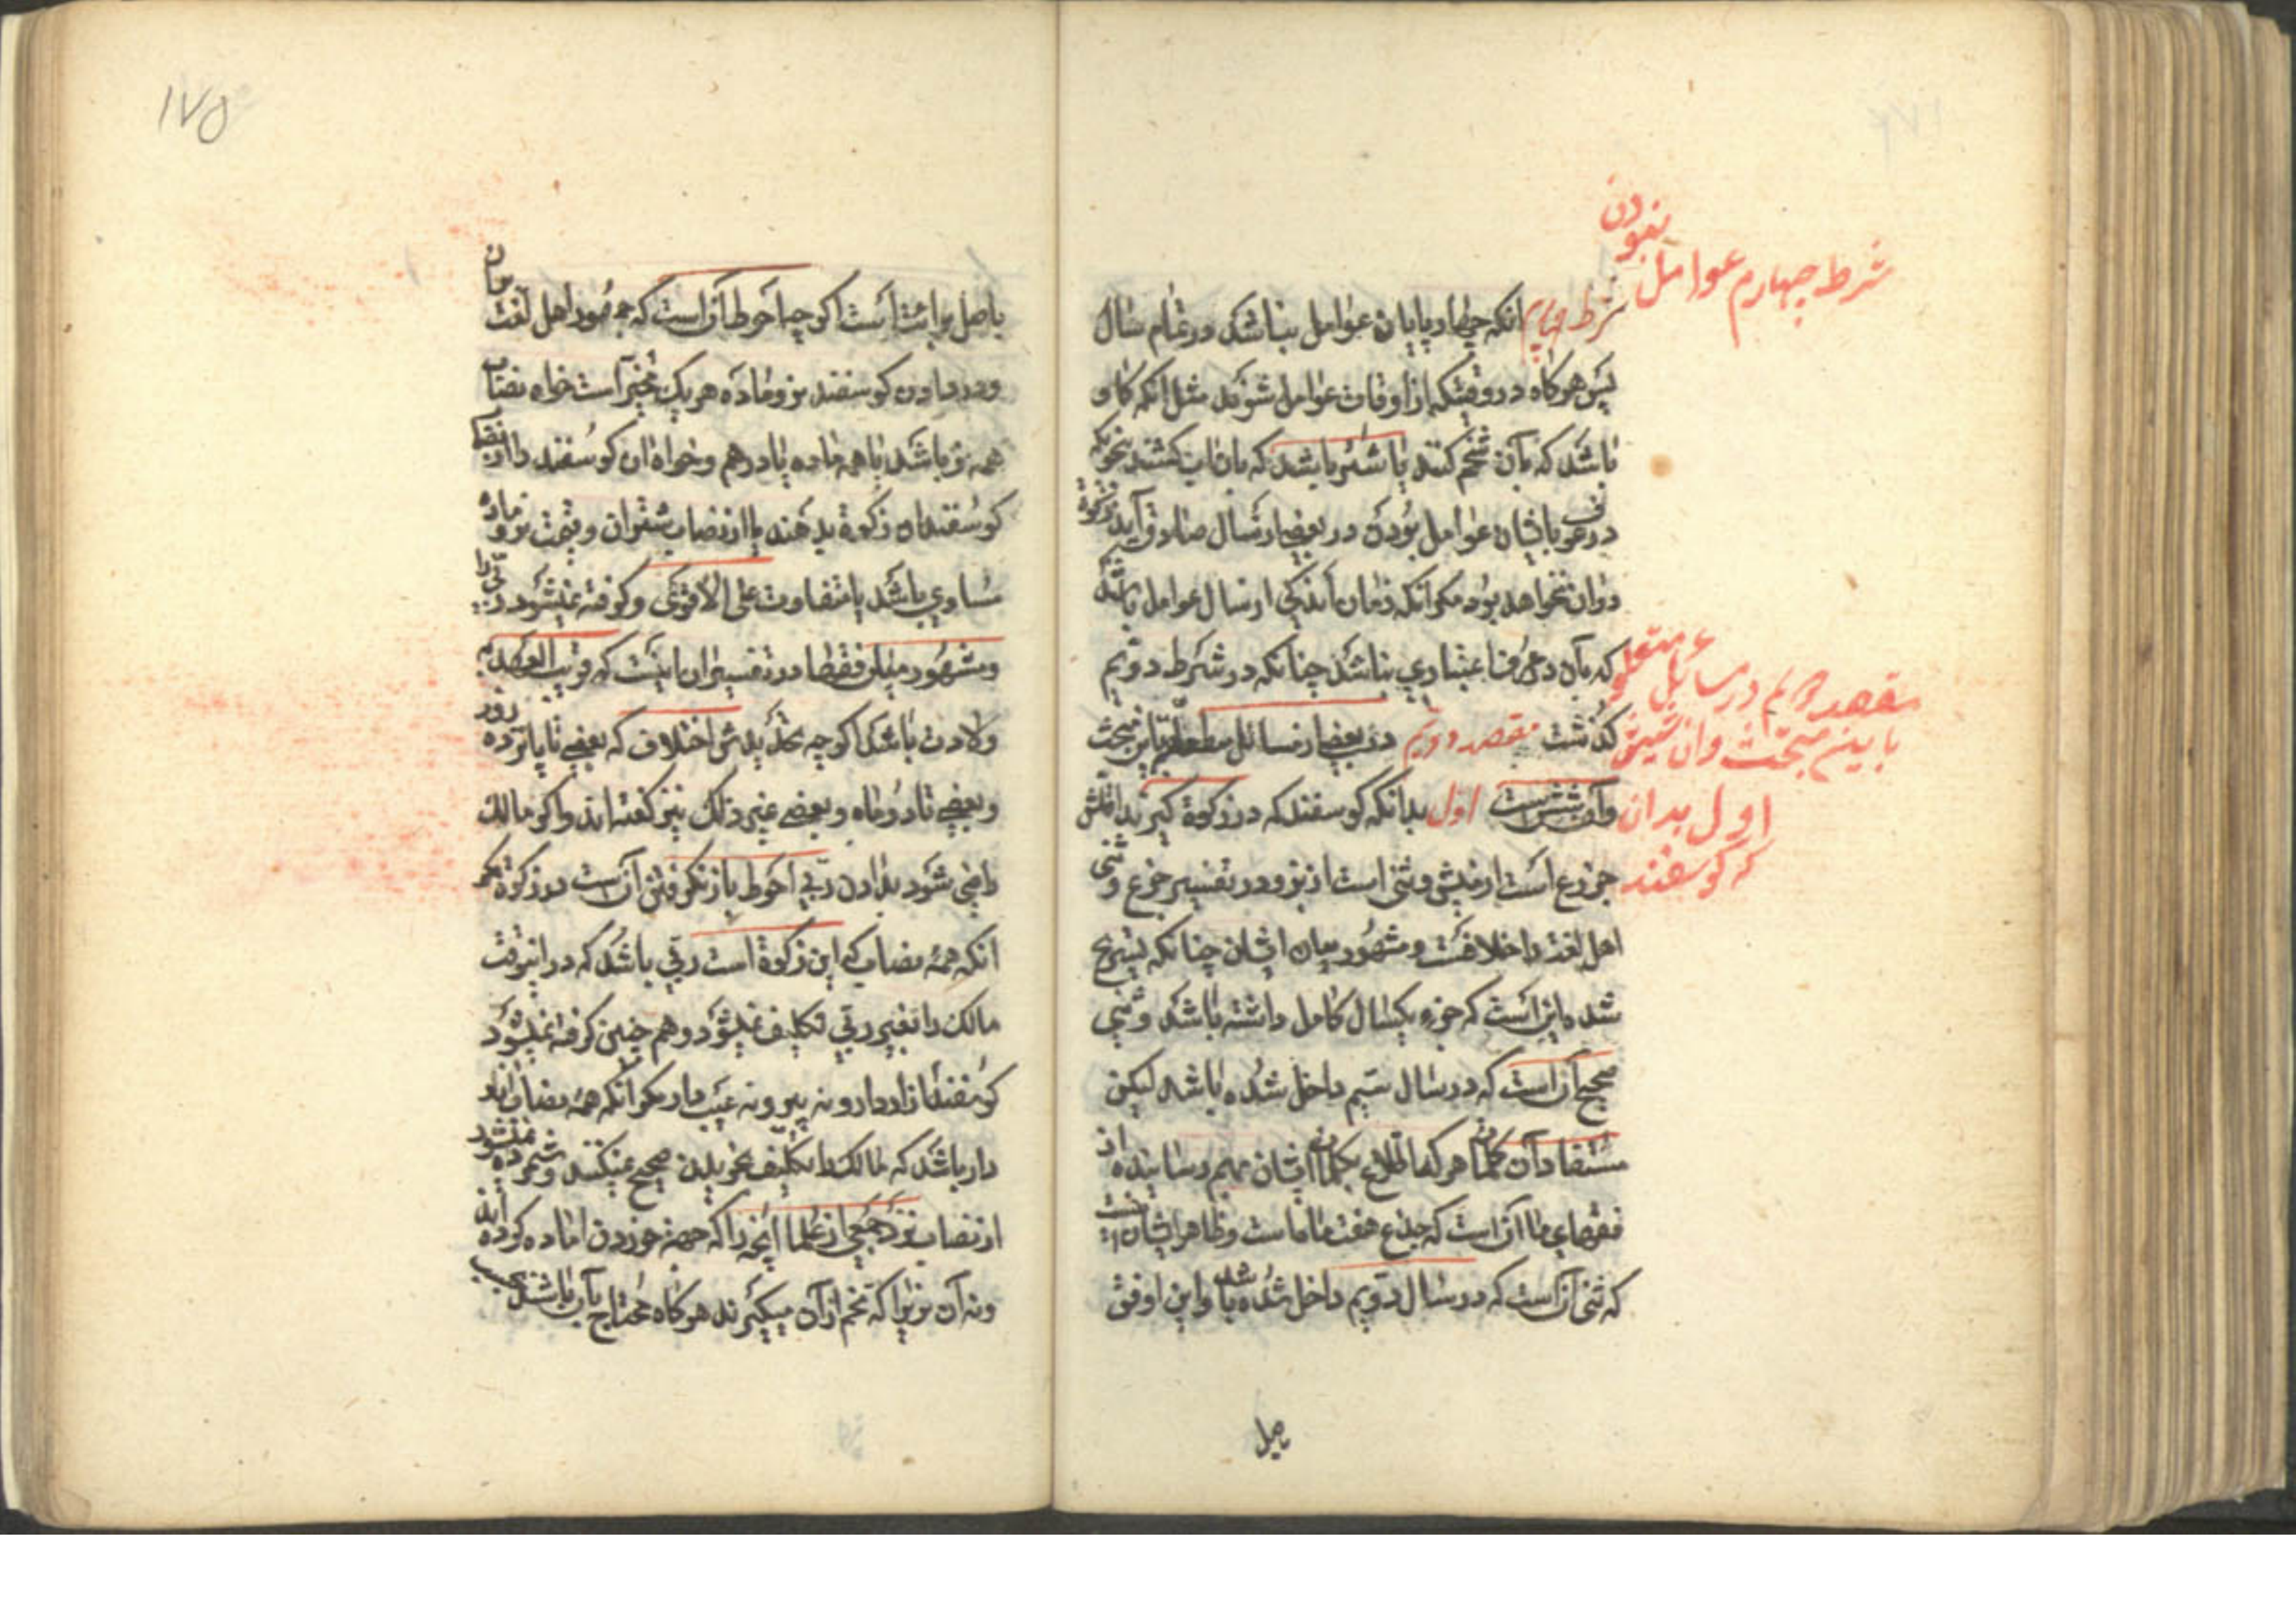 شرط چهارم عوامل نبودن
شرط چهارم انکه چهارپایان عوامل نباشد در تمام سال
پس هرکاه در وقتیکه از اوقات عوامل شوند مثل انکه کاو
باشد که بآن تخم کنند یا شتر باشد که بآن اب کشند بنحویکه
در عرف باشان عوامل بودن در بعضی از سال صادق آید زکوة
دران نخواهد بود مکر انکه زمان اندکی از سال عوامل باشد
که بآن در عرف اعتباری نباشد چنانکه در شرط دویم
مقصد دویم در مسایل متعلق
باین مبحث وان شش
کذشت مقصد دویم در بعضی از مسائل متعلقه باین مبحث
وآن شش است اول بدانکه کوسفند که در زکوة کیرند اقلش
اول بدان
که کوسفند
جزع است از میش و ثنی است از بز و در تفسیر جزع و ثنی
اهل لغة را خلافست و مشهور میان ایشان چنانکه تصریح
شده این است که جزع یکسال کامل داشته باشد و ثنی
صحیح آن است که در سال سیم داخل شده باشد لیکن
مستفاد آن کلمات هرکه اطلاع بکلمات ایشان بهم رسانیده از
فقهای ما آن است که جذع هفت ماهه است و ظاهر ایشان
که ثنی آن است که در سال دویم داخل شده باشد و این اوفق
باصل
۱۷۵
باصل برائت است اکرچه احوط آن است که جمهور اهل لغت
و در دادن کوسفند نر و ماده هر یک مخیر است خواه نصاب
همه نر باشد یا همه ماده یا در هم و خواه ان کوسفند را از نصاب
کوسفندان زکوة بدهند یا از نصاب شتران و قیمت نر و ماده
مساوی باشد یا متفاوت علی الاقوی و کرفته نمیشود ربی
و مشهور میان فقها در تفسیر ان اینست که قریب العهد به
ولادت باشد اکرچه تحدیدش اختلاف که بعضی تا پانزده روز
و بعضی تا دو ماه و بعضی غیر ذلک نیز کفته اند و اکر مالک
راضی شود بدادن ربی احوط باز نکرفتن آن است در زکوة مکر
انکه همه نصاب که این زکوة است ربی باشد که در اینوقت
مالک را بغیر ربی تکلیف نمیشود و هم چنین کرفته نمیشود
کوسفند ازاردار و نه پیر و نه عیب دار مکر انکه همه نصاب
دار باشد که مالک را تکلیف بخریدن صحیح نمیکنند و شمرده نمیشود
از نصاب نزد جمعی از علما انچه را که جهة خوردن اماده کرده اند
و نه آن نر را که تخم از آن میکیرند هرکاه محتاج بآن باشند